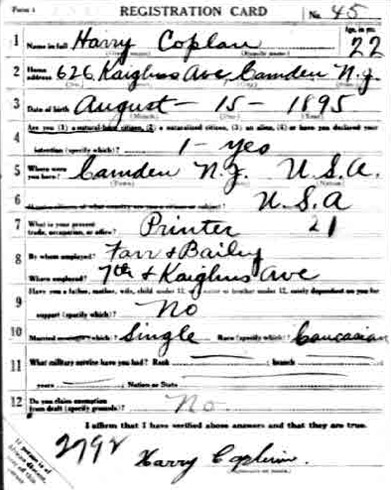 Form 1 REGISTRATION CARD No. 45
1 Name in full Harry Coplan Age, in yrs. 22
2 Home address 626 Kaighns Ave, Camden N.J.
3 Date of birth August - 15 - 1895
4 Are you (1) a natural-born citizen, (2) a naturalized citizen, (3) an alien, (4) or have you declared your
intention (specify which)? 1 - yes
5 Where were you born? Camden N.J. U.S.A.
6 U.S.A
7 What is your present trade, occupation, or office? Printer 21
8 By whom employed? Farr & Baily
Where employed? 7th & Kaighns Ave
9 Have you a father, mother, wife, child under 12, or a sister or brother under 12, solely dependent on you for
support (specify which)? No
10 Married or single (which)? Single Race (specify which)? Caucasian
11 What military service have you had? Rank branch
years Nation or State
12 Do you claim exemption from draft (specify grounds)? No
I affirm that I have verified above answers and that they are true.
2792
Harry Coplan
If person is of African descent,